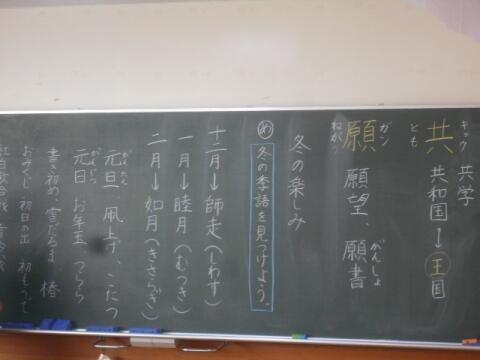 キョウ 共 共学
とも 共和国↔王国
ガン 願 願望、願書 がんしょ
ねがう
冬の楽しみ
め 冬の季語を見つけよう。
十二月→師走(しわす)
一月→睦月(むつき)
二月→如月(きさらぎ)
元旦、凧上げ、こたつ
元日 お年玉 つらら
書き初め、雪だるま、椿
おみくじ 初日の出 初もうで
紅白歌合戦